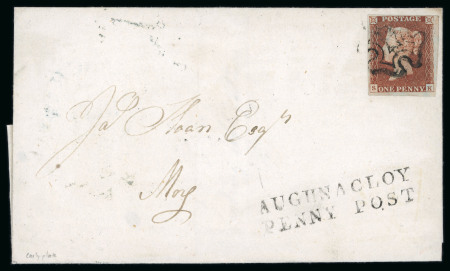 POSTAGE
ONE PENNY
Jas Sloan Esqr
Moy
AUGHNACLOY
PENNY POST